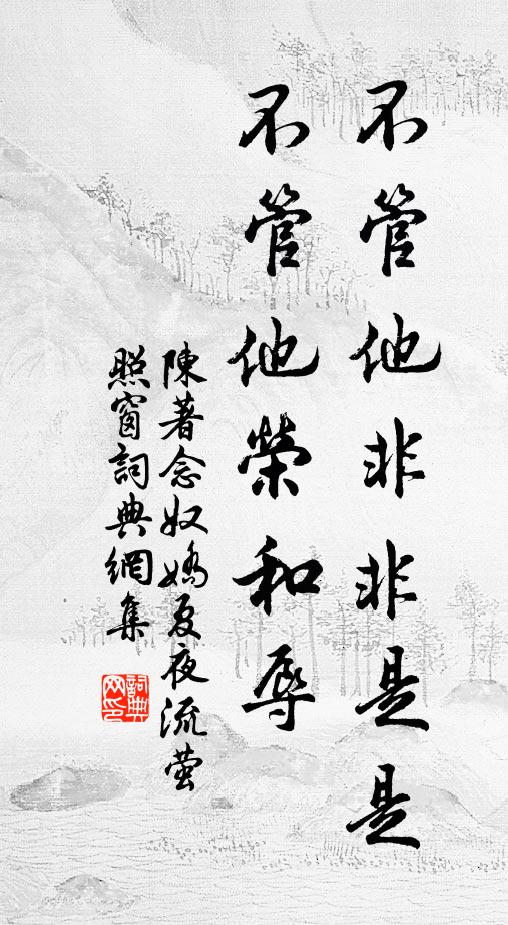 不管他非非是是
不管他榮和辱
陳著念奴嬌夏夜流螢
照窗詞典網集
詞典
网印